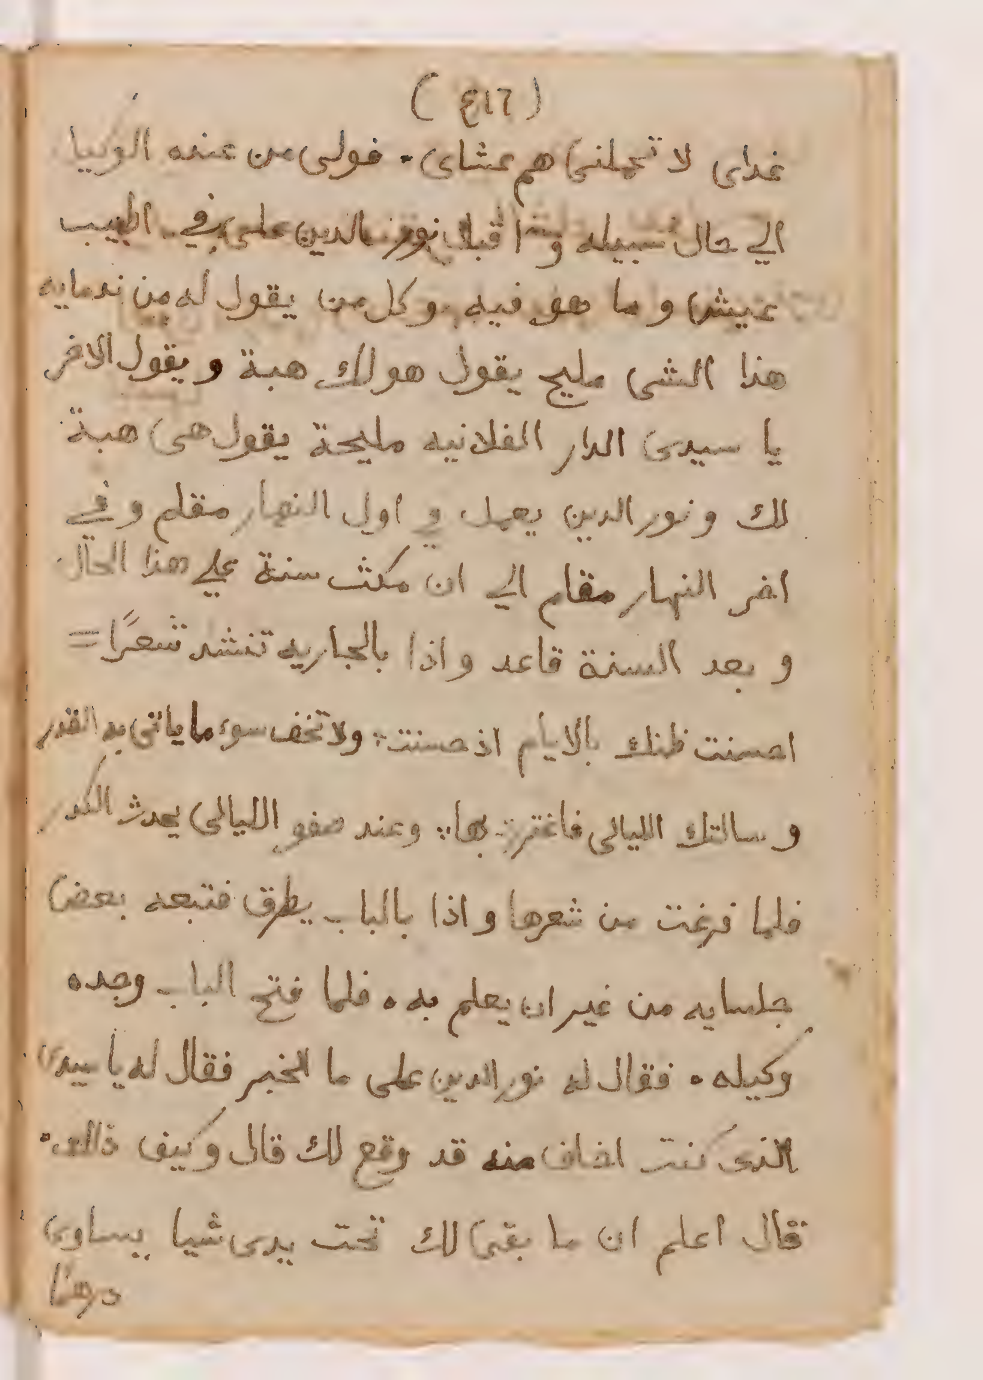 (٤١٦)
غداى لا تحملنى هم عشاى . فولى من عنده الوكيل
الي حال سبيله و اقبل نور الدين على في اطيب
عيش و ما هو فيه وكل من يقول له من ندمايه
هذا الشى مليح يقول هو لك هبة و يقول الاخر
يا سيدى الدار الفلانيه مليحة يقول هى هبة
لك و نور الدين يعمل في اول النهار مقام و في
اخر النهار مقام الي ان مكث سنة علي هذا الحال
و بعد السنة قاعد و اذا بالجاريه تنشد شعرًا =
احسنت ظنك بالايام اذ حسنت ؞ ولا تخف سوء ما ياتى به القدر
و سالتك الليالى فاغتررت بها ؞ وعند صفو الليالى يحدث الكدر
فلما فرغت من شعرها و اذا بالباب يطرق فتبعه بعض
جلسايه من غير ان يعلم به . فلما فتح الباب وجده
وكيله . فقال له نور الدين على ما الخبر فقال له يا سيدى
الذى كنت اخاف منه قد وقع لك قال و كيف ذلك .
قال اعلم ان ما بقى لك تحت يدى شيا يساوى
درهمًا